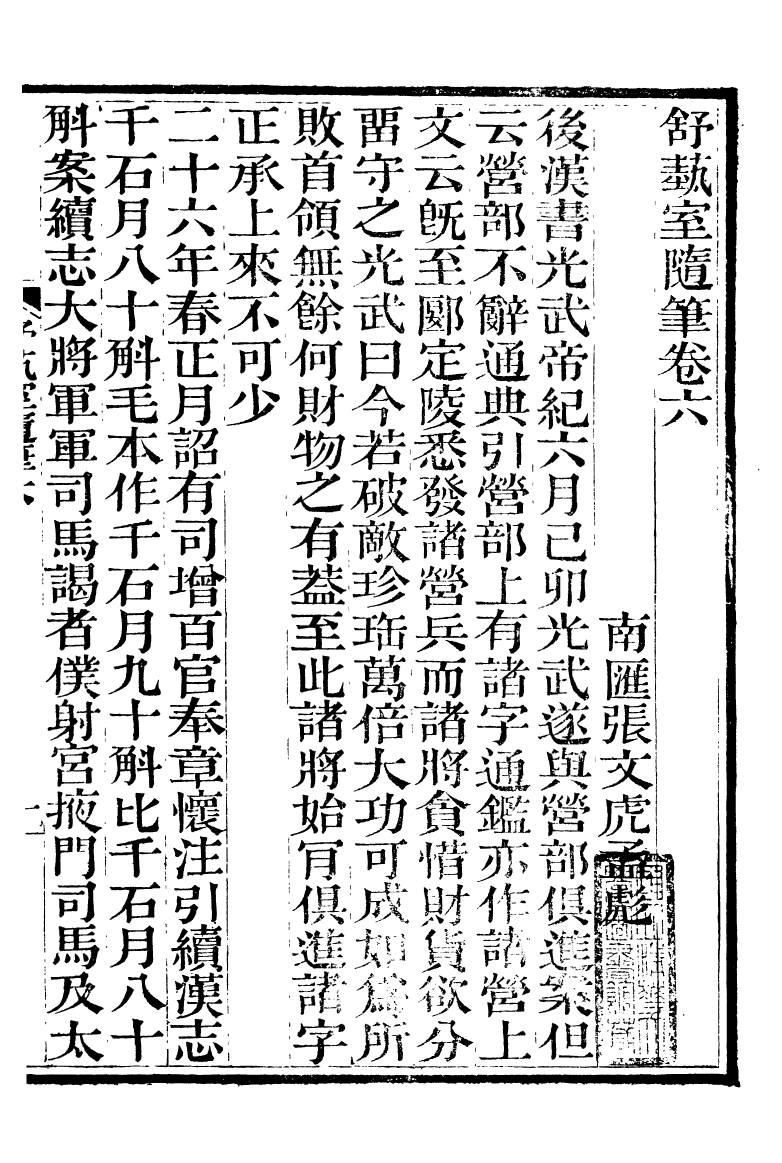 舒藝室隨筆卷六
南匯張文虎孟彪
後漢書光武帝紀六月己卯光武遂與營部俱進案但
云營部不辭通典引營部上有諸字通鑑亦作諸營上
文云旣至郾定陵悉發諸營兵而諸將貪惜財貨欲分
畱守之光武曰今若破敵珍珤萬倍大功可成如爲所
敗首領無餘何財物之有葢至此諸將始肎俱進諸字
正承上來不可少
二十六年春正月詔有司增百官奉章懷注引續漢志
千石月八十斛毛本作千石月九十斛比千石月八十
斛案續志大將軍軍司馬謁者僕射宮掖門司馬及太